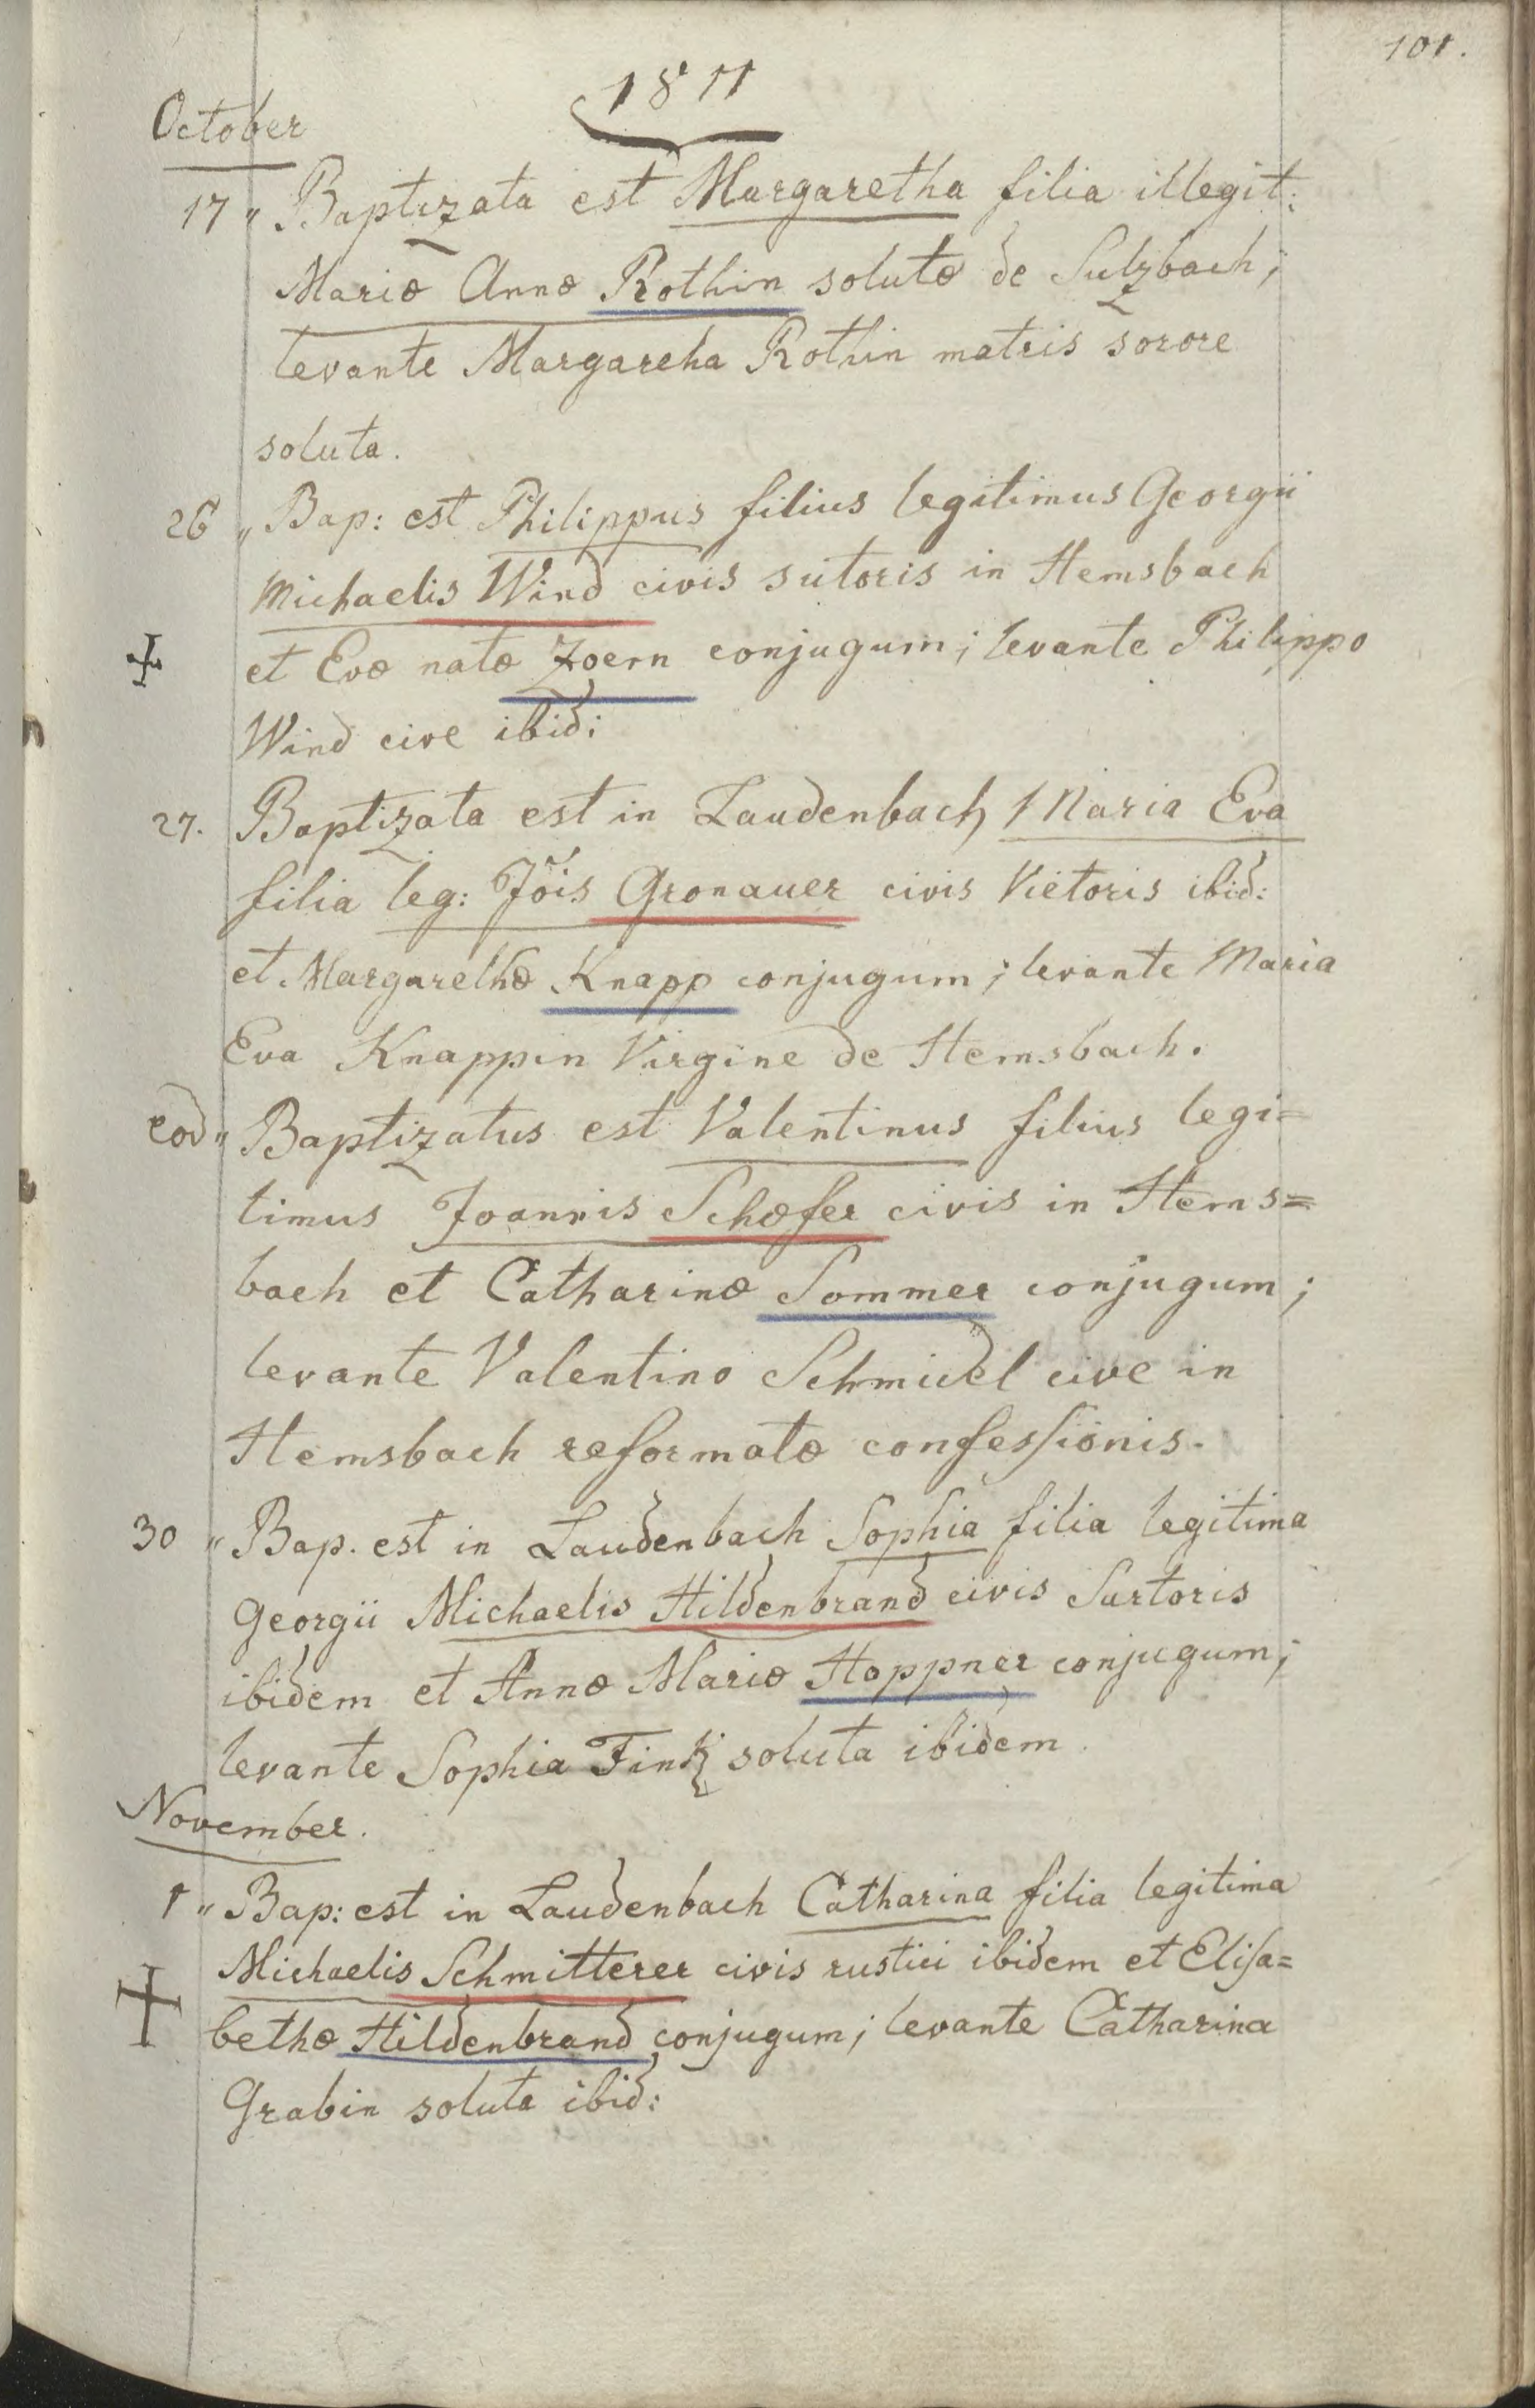 101.
1811
October
17 „ Baptizata est Margaretha filia illegit:
Mariæ Annæ Rothin solutæ de Sulzbach;
levante Margareha Rothin matris sorore
soluta.
26 „ Bap: est Philippus filius legitimus Georgii
Michaelis Wind civis sutoris in Hemsbach
et Evæ natæ Zoern conjugum; levante Philippo
Wind cive ibid:
27. Baptizata est in Laudenbach Maria Eva
filia leg: Jõis Gronauer civis Vietoris ibid:
et Margarethæ Knapp conjugum; levante Maria
Eva Knappin Virgine de Hemsbach.
eod „ Baptizatus est Valentinus filius legi=
timus Joannis Schæfer civis in Hems=
bach et Catharinæ Sommer conjugum;
levante Valentino Schmidel cive in
Hemsbach reformatæ confessionis.
30 „ Bap. est in Laudenbach Sophia filia legitima
Georgii Michaelis Hildenbrand civis Sartoris
ibidem et Annæ Mariæ Hoppner conjugum;
levante Sophia Fink soluta ibidem.
November.
1 „ Bap: est in Laudenbach Catharina filia legitima
Michaelis Schmitterer civis rustici ibidem et Elisa=
bethæ Hildenbrand conjugum; levante Catharina
Grabin soluta ibid: